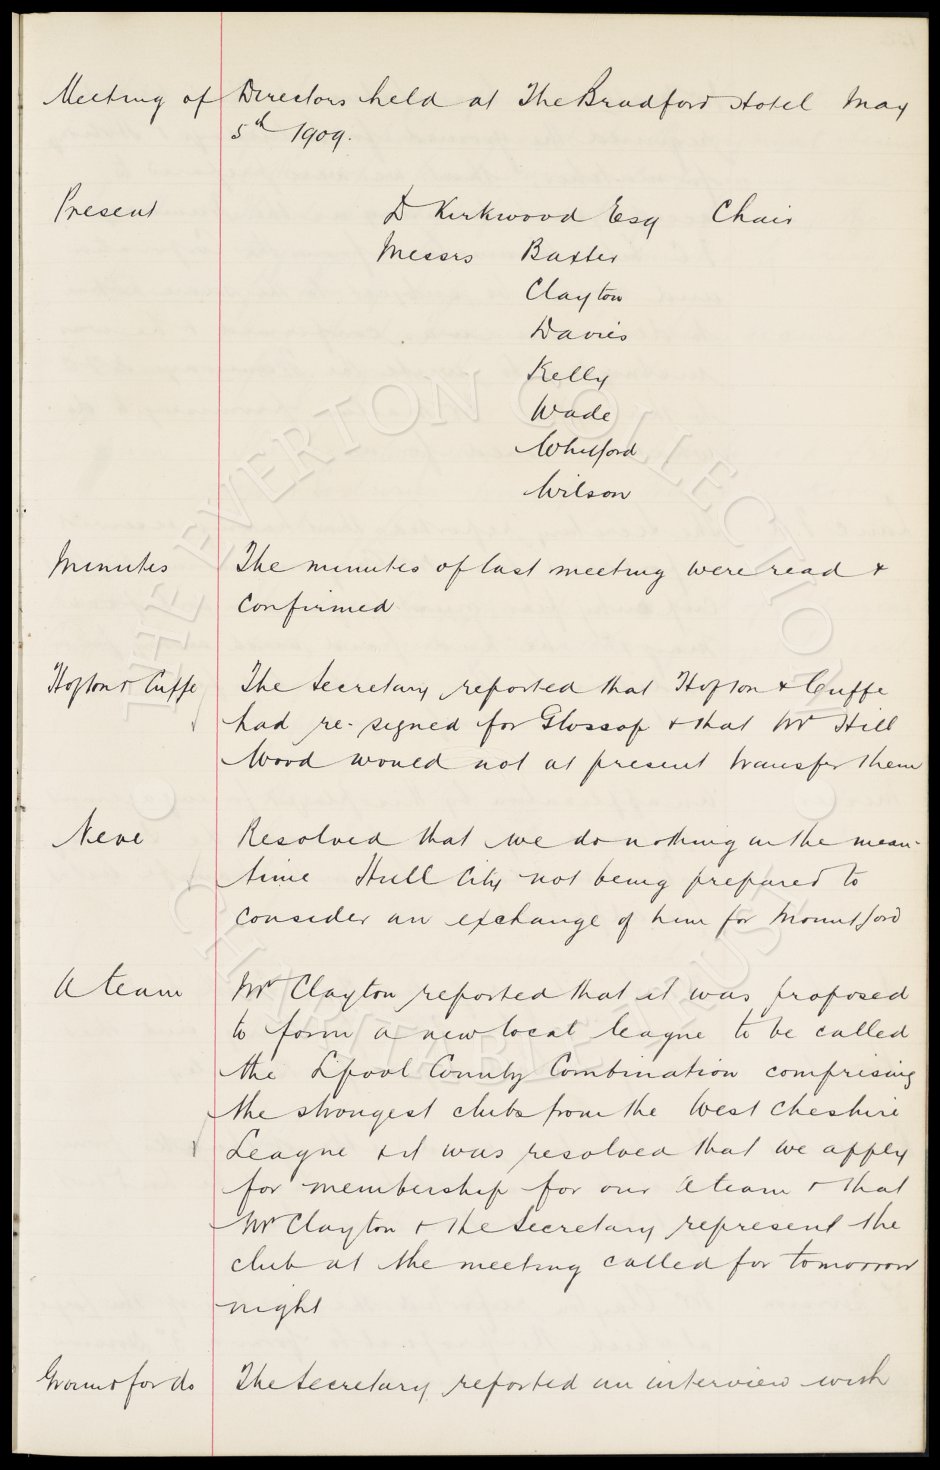 Meeting of Directors held at The Bradford Hotel May
5th 1909.
Present D Kirkwood Esq Chair
Messrs Baxter
Clayton
Davies
Kelly
Wade
Whitford
Wilson
Minutes The minutes of last meeting were read &
confirmed
Hofton & Cuffe The Secretary reported that Hofton & Cuffe
had re-signed for Glossop & that Mr Hill
Wood would not at present transfer them
Neve Resolved that we do nothing in the mean-
time Hull City not being prepared to
consider an exchange of him for Mountford
A team Mr Clayton reported that it was proposed
to form a new local league to be called
the L'pool County Combination comprising
the strongest clubs from the West Cheshire
League & it was resolved that we apply
for membership for our A team & that
Mr Clayton & the Secretary represent the
club at the meeting called for tomorrow
night
Ground for do The Secretary reported an interview with
THE EVERTON COLLECTION
CHARITABLE TRUST